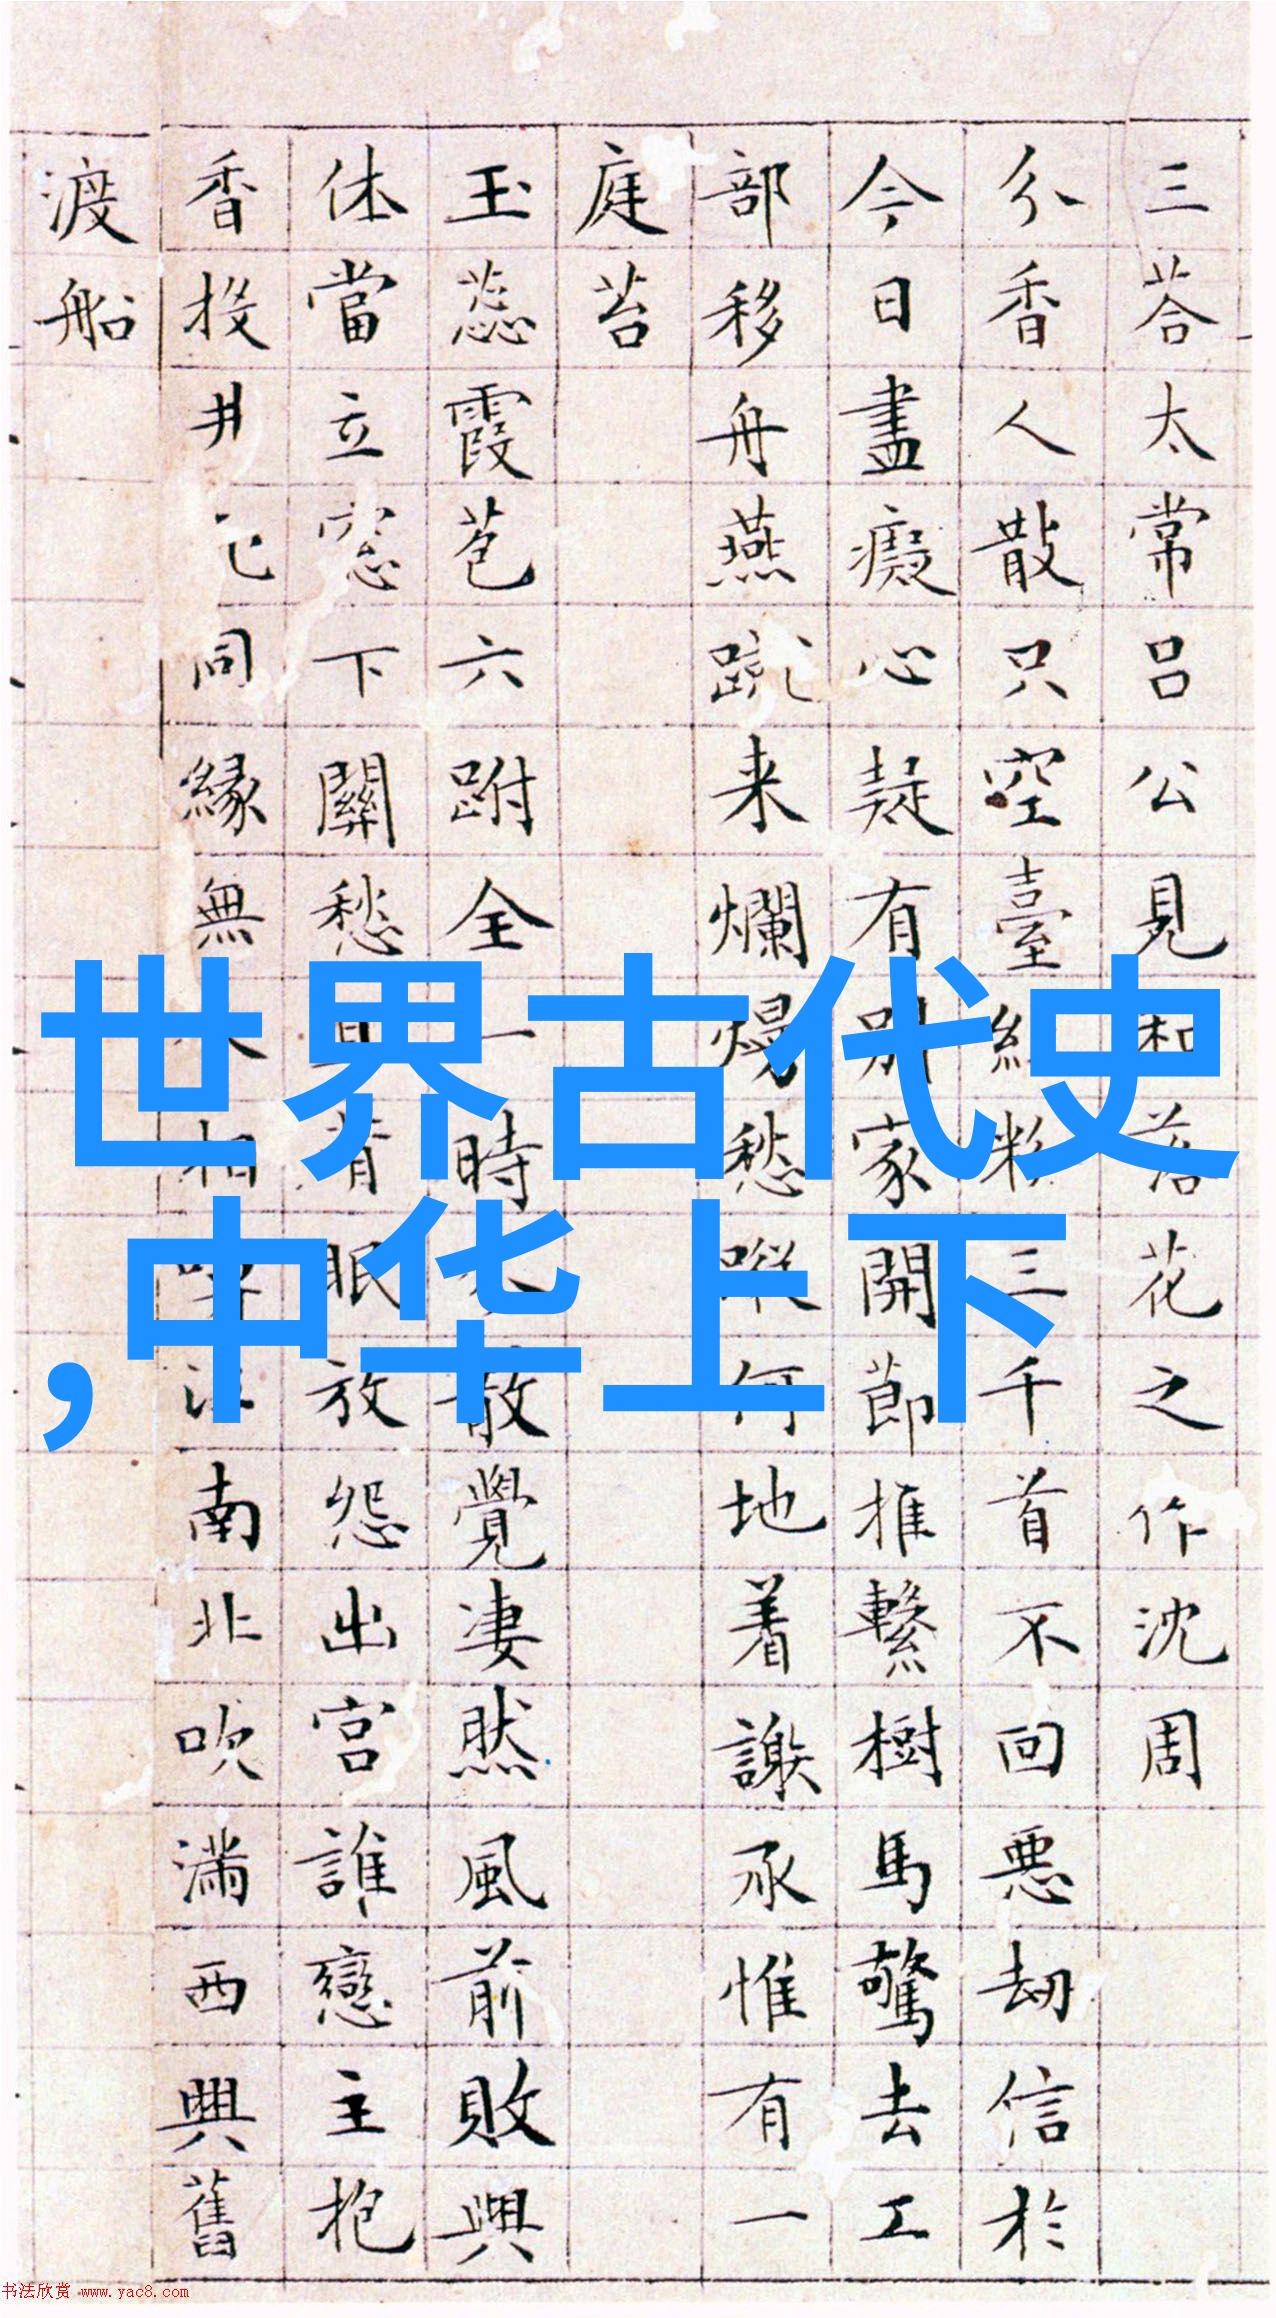 世界古代史
,中华上下
三荅太常吕公見和落花之作沈周
分香人散只空臺紅粉三千首不回惡劫信於
今日盡癡心疑有别家開節推繫樹馬驚去工
部移舟燕蹴来爛熳愁蹤何地着謝承惟有一
庭苔
玉蕊霞苞六跗全一時散覺凄然風前敗興
休當立窓下關愁且背眠放怨出宫誰戀主抱
香投井已同縁無人相江南北吹滿西興舊
渡船
书法欣赏 www.yac8.com